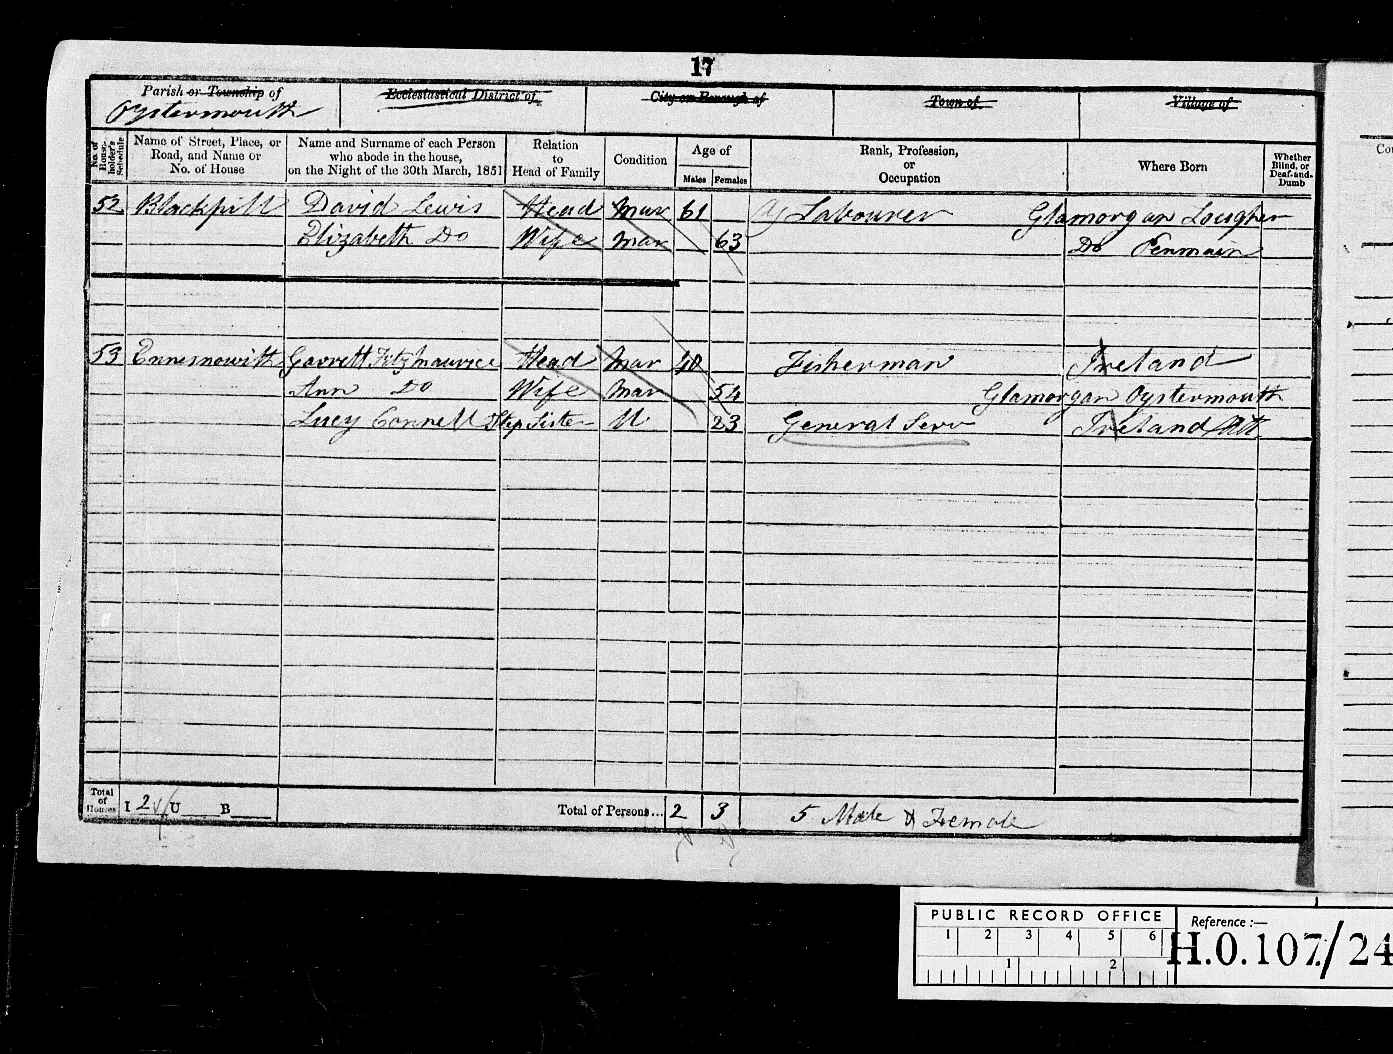 17
Parish or Township of Ecclesiastical District of City or Borough of Town of Village of
Oystermouth
No. of Householder's Schedule Name of Street, Place, or Road, and Name or No. of House Name and Surname of each Person who abode in the house, on the Night of the 30th March, 1851 Relation to Head of Family Condition Age of Males Females Rank, Profession, or Occupation Where Born Whether Blind, or Deaf-and-Dumb
52 Blackpill David Lewis Head Mar 61 Ag Labourer Glamorgan Lougher
Elizabeth Do Wife Mar 63 Do Penmain
53 Garrett Fitzmaurice Head Mar 40 Fisherman Ireland
Ann Do Wife Mar 54 Glamorgan Oystermouth
Lucy Connell Step Sister U 23 General Serv Ireland
Total of Houses I 2 U B Total of Persons... 2 3 5 Male & Female
PUBLIC RECORD OFFICE Reference :—
1 2 3 4 5 6 H.O. 107/24
1 2